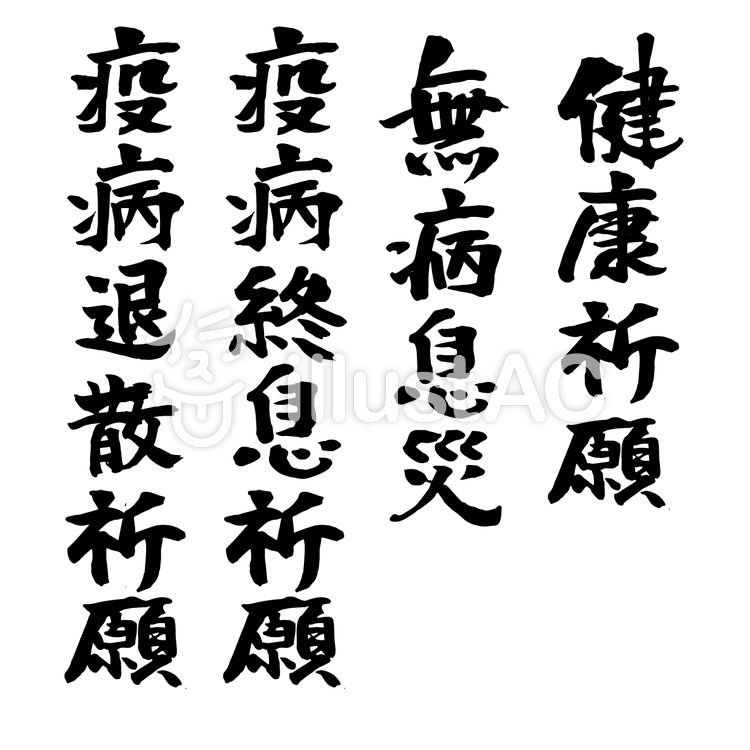 健康祈願
無病息災
疫病終息祈願
疫病退散祈願
illustAC